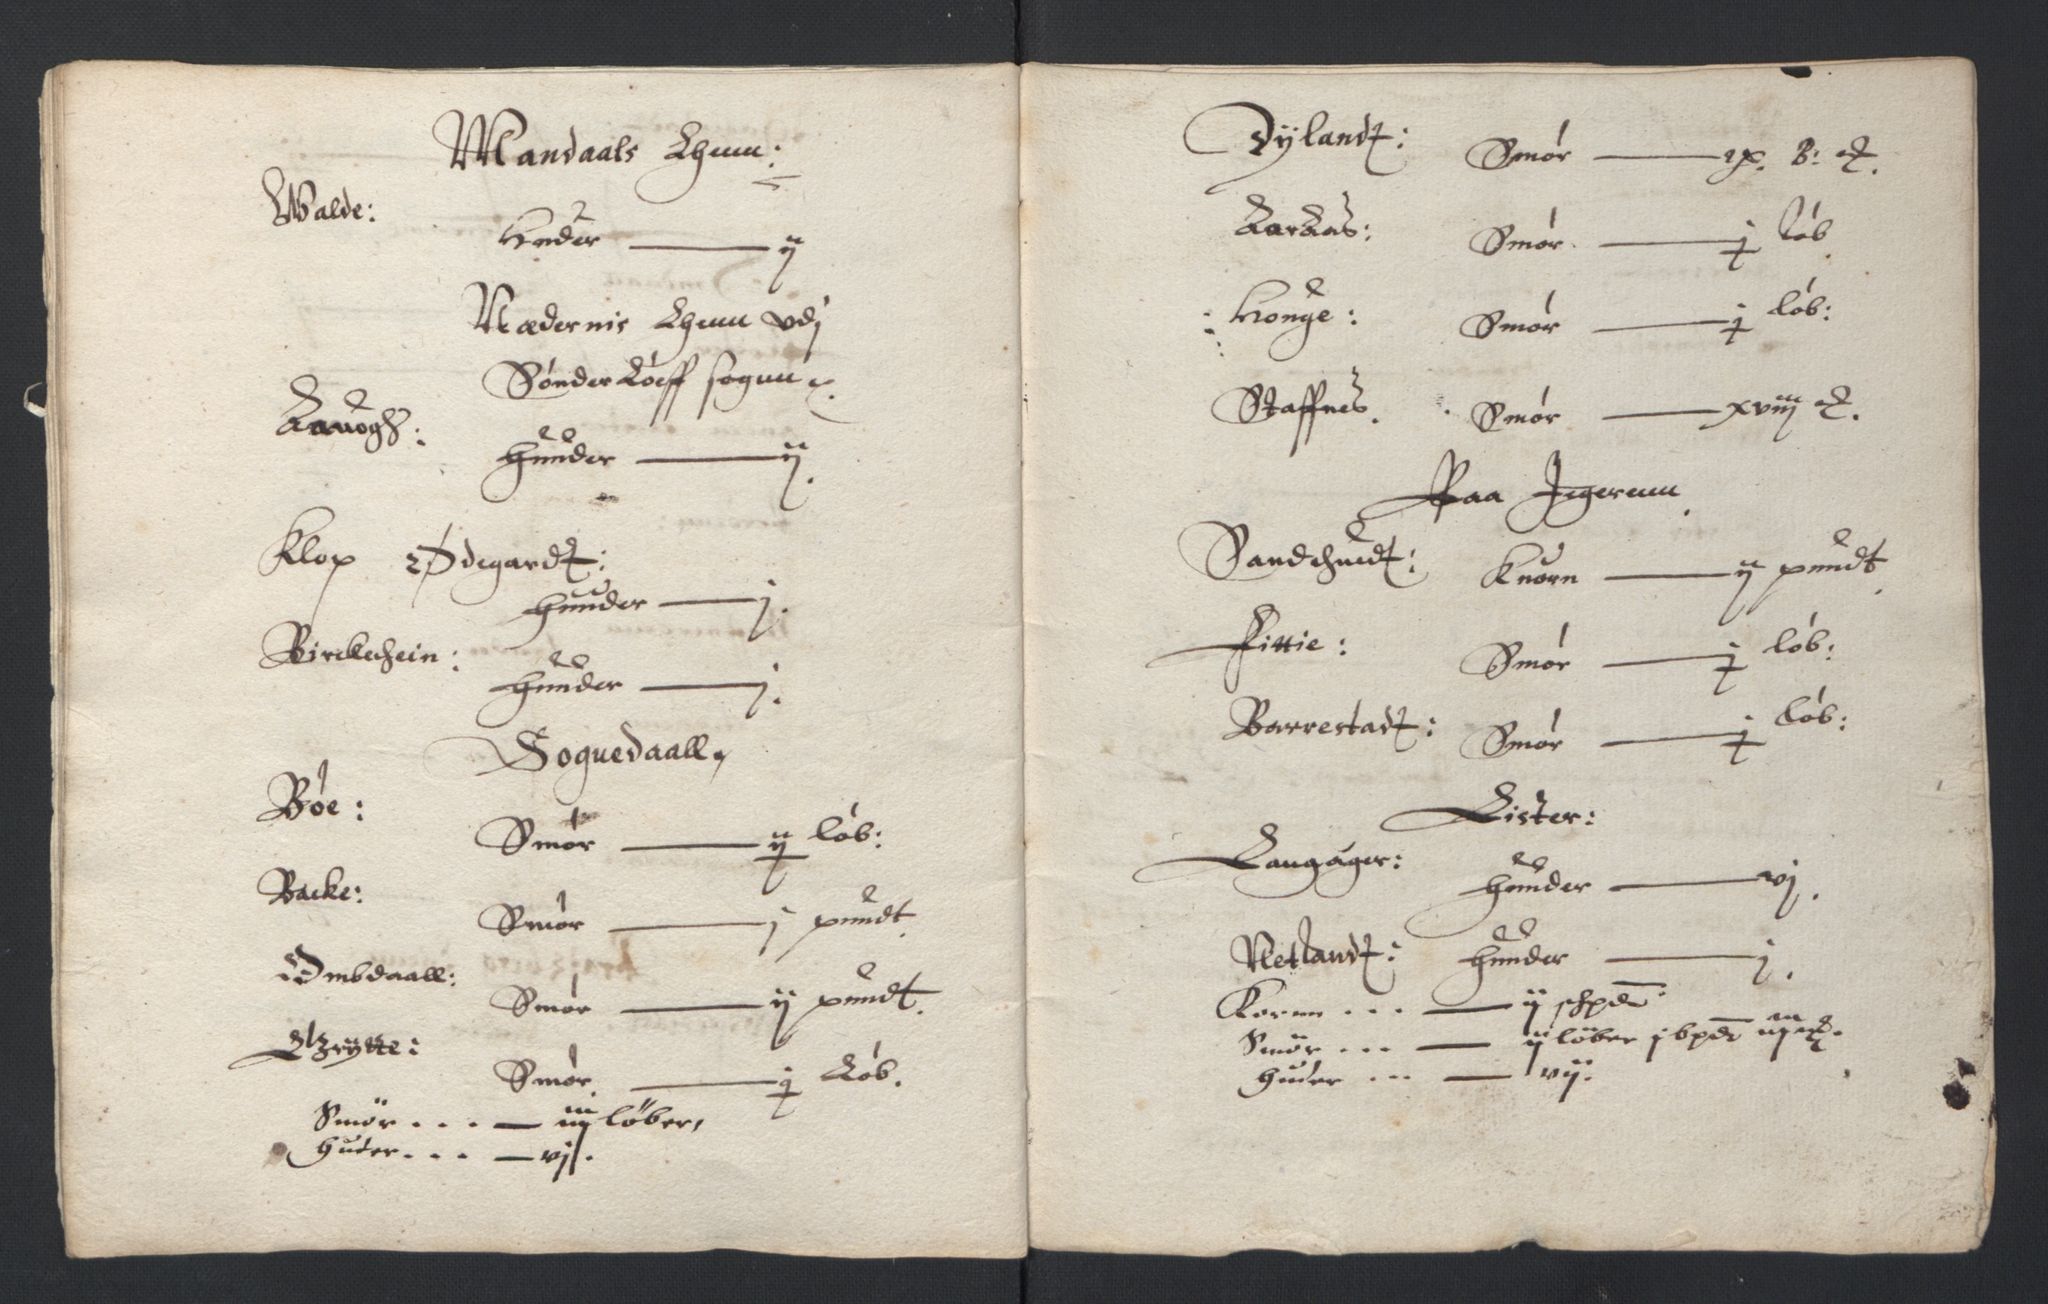 Mandaals Lhenn:
Walde:
Huder — ij
Nædernis Lhenn vdj
Sønder Løeff sognn
Aauogh:
Huuder — ij.
Klop Ødegardt:
Huuder — j.
Birckehein:
Huuder — j.
Soguedaall,
Bøe:
Smør — ij løb:
Backe:
Smør — j pundt
Ombdaall:
Smør — ij pundt.
Smør — j Løb.
Smør . . . — iiij løber,
Huder. . . — vj.
Dÿlandt:
Smør — ix.
Smør — j løb
Houge:
Smør — j løb:
Staffnes.
Smør — xviij
Paa Jegerenn
Sandehuedt:
Kuorn — ij pundt
Fittie:
Smør — j løb:
Barrestadt:
Smør — j løb:
Lister:
Langager:
Huuder — vj.
Netlandt:
Huuder — j.
Koren . . . — ij schpd
Smør . . . — ij løber j bpd
Huder . . . — vij.